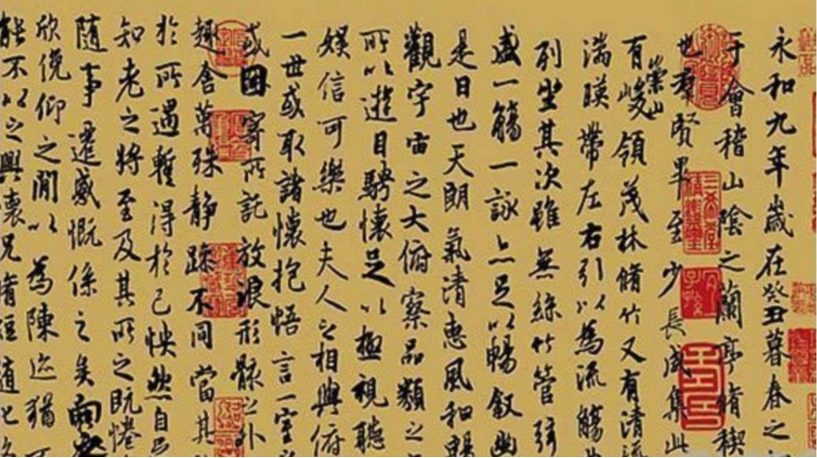 永和九年歲在癸丑暮春之
于會稽山陰之蘭亭脩稧
也羣賢畢至少長咸集此
有崇山峻領茂林脩竹又有清流
湍暎帶左右引以為流觴
列坐其次雖無絲竹管弦
盛一觴一詠亦足以暢敘幽
是日也天朗氣清惠風和暢
觀宇宙之大俯察品類之
所以遊目騁懷足以極視聽
娛信可樂也夫人之相與俯
一世或取諸懷抱悟言一室
或因寄所託放浪形骸之外
趣舍萬殊静躁不同當其
於所遇蹔得於己怏然自
知老之將至及其所之既惓
隨事遷感慨係之矣向
欣俛仰之閒以為陳迹猶
能不以之興懷況脩短隨化